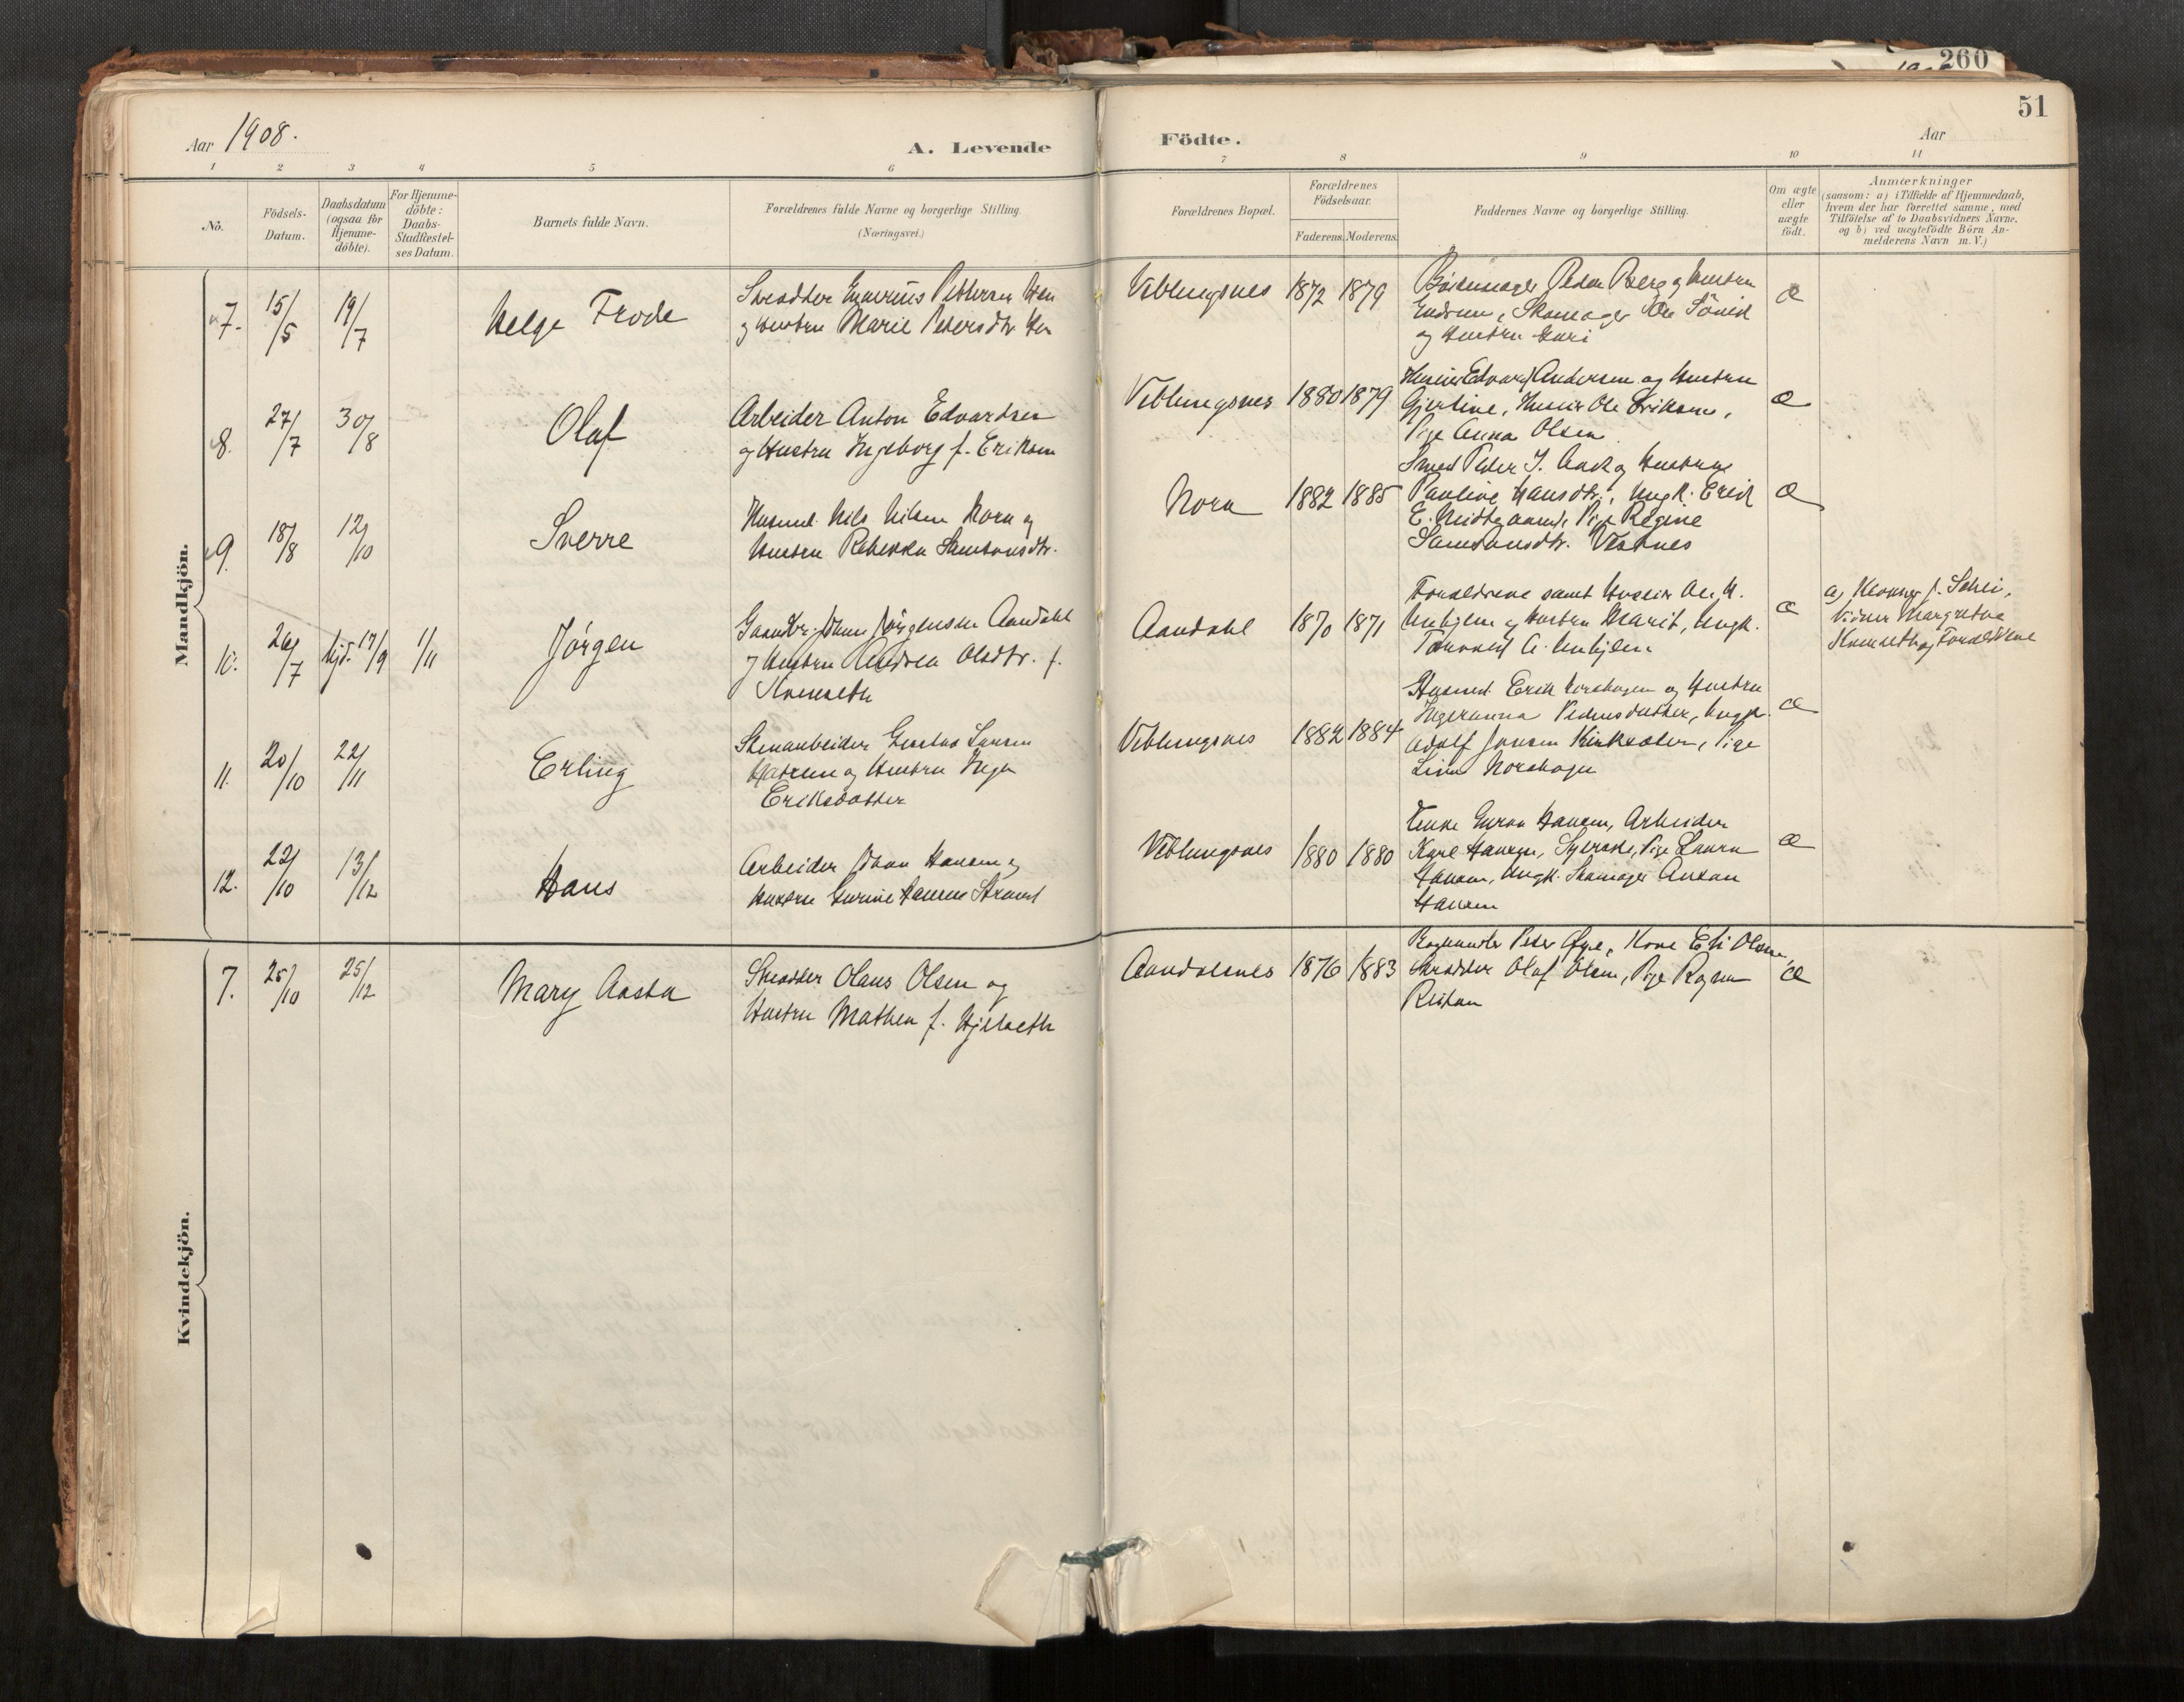 260
51
Aar 1908.
A. Levende
Födte.
Aar
1 2 3 4 5 6 7 8 9 10 11
No.
Födsels-
Datum.
Daabsdatum
(ogsaa for
Hjemme-
döbte).
For Hjemme-
döbte:
Daabs-
Stadfæstel-
ses Datum.
Barnets fulde Navn.
Forældrenes fulde Navne og borgerlige Stilling.
(Næringsvei.)
Forældrenes Bopæl.
Forældrenes
Födselsaar.
Faderens. Moderens.
Faddernes Navne og borgerlige Stilling.
Om ægte
eller
uægte
födt.
Anmærkninger
(saasom: a) i Tilfælde af Hjemmedaab,
hvem der har forrettet samme, med
Tilföielse af to Daabsvidners Navne,
og b) ved uægtefödte Börn An-
melderens Navn m.V.)
Mandkjön.
7. 15/5 19/7 Helge Frode
Skrædder Pettersen Hen
og Hustru Marie Pedersdtr. Hen
Veblungsnes 1872 1879
Peder Berg og Hustru
Skomager Ole
og Hustru Guri
æ
8. 27/7 30/8 Olaf
Arbeider Anton Edvardsen
og Hustru Ingeborg f. Eriksen
Veblungsnes 1880 1879
Edvard Andersen og Hustru
Gjertine, Ole Eriksen,
Pige Anna Olsen
æ
9. 18/8 12/10 Sverre
Husmd. Nils Nilsen Nora og
Hustru Rebekka Samsonsdtr.
Nora 1882 1885
Smed Peder J. og Hustru
Pauline Hansdtr., Ungk. Erik
E. Pige Regine
Samsonsdtr. Vestnes
æ
10. 26/7 hjd. 17/9 1/11 Jörgen
Gaardbr. Johan Jörgensen Aandahl
og Hustru Andrea Olsdtr. f.
Kvenseth
Aandahl 1870 1871
Forældrene samt Ole H.
Unhjem og Hustru Marit, Ungk.
A. Unhjem
æ
a) Klokker f.
Vidner Margrethe
Kvenseth og Forældrene
11. 20/10 22/11 Erling
Stenarbeider Larsen
og Hustru Inga
Eriksdatter
Veblungsnes 1882 1884
Husmd. Erik Norshagen og Hustru
Pedersdatter, Ungk.
Adolf Jensen Pige
Norshagen
æ
12. 22/10 13/12 Hans
Arbeider Johan Hansen og
Hustru Hansen Strand
Veblungsnes 1880 1880
Enke Hansen, Arbeider
Karl Hansen, Syerske, Pige Laura
Hansen, Ungk. Skomager Anton
Hansen
æ
Kvindekjön.
7. 25/10 25/12 Mary Aasta
Skrædder Olaus Olsen og
Hustru Mathea f. Hjelseth
Aandalsnes 1876 1883
Peder Kone Eli Olsen,
Skrædder Olaf Olsen, Pige Ragna
æ